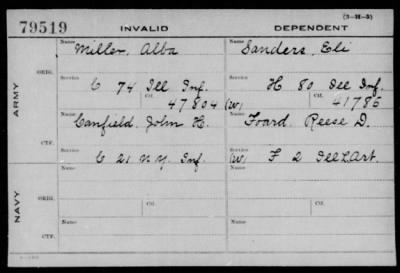 79519 INVALID DEPENDENT (3-H-5)
Name Miller, Alba Name Sanders, Eli
ORIG.
Service C 74 Ill Inf. Service H 80 Ill Inf.
Ctf. 47804 (W) Ctf. 41786
ARMY
Name Canfield, John H. Name Foard, Reese D.
CTF.
Service C 21 N.Y. Inf. Service (W) F 2 Ill L Art.
NAVY
Name Ctf. Name Ctf.
ORIG.
Name Name
CTF.